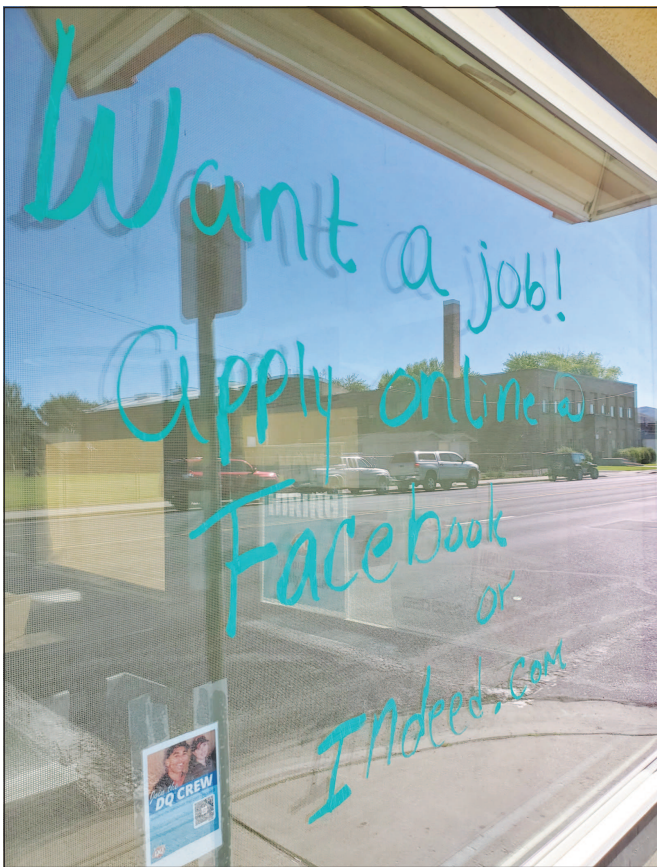 Want a job!
apply online @
Facebook
or
Indeed.com
DQ CREW